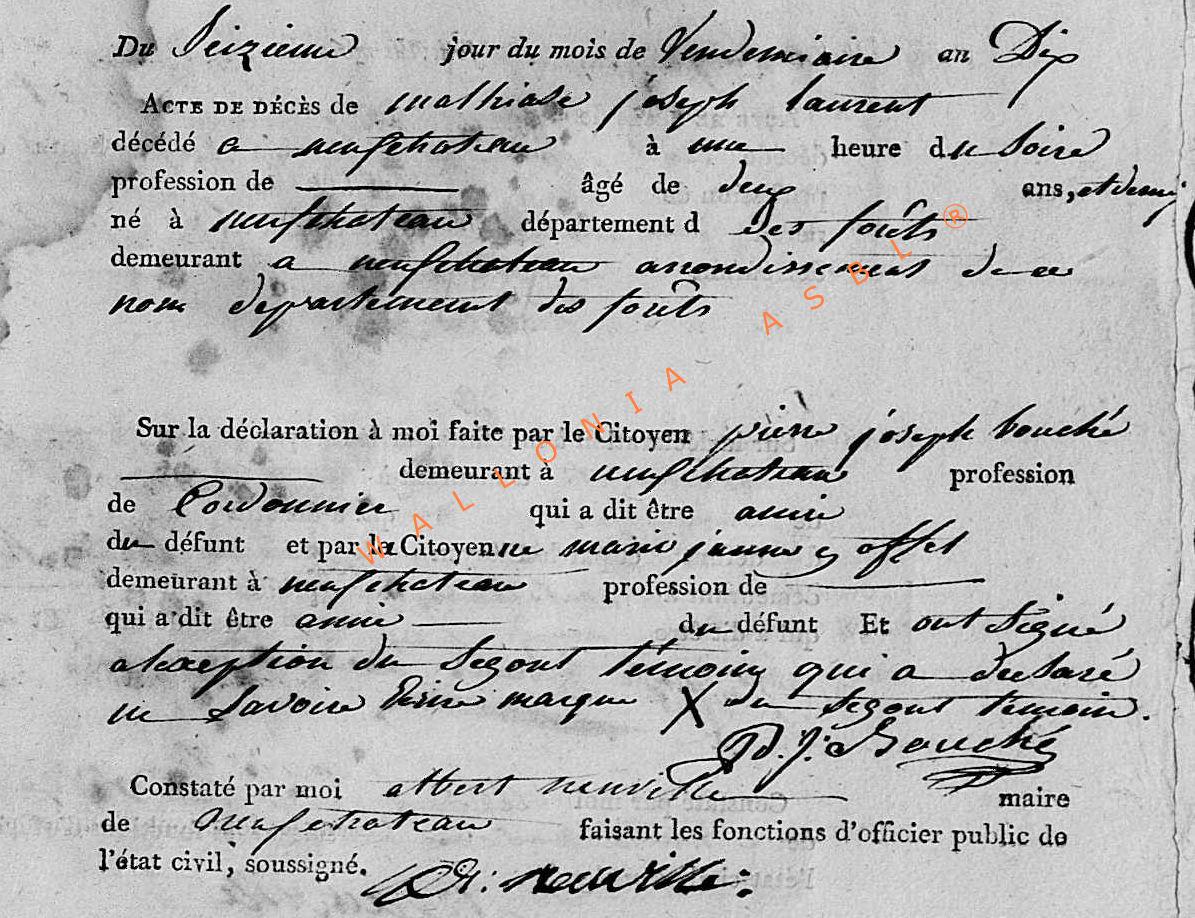 Du Seizieme jour du mois de Vendemiaire an Dix
ACTE DE DÉCÈS de mathiase joseph laurent
décédé a neufchateau à une heure du Soire
profession de âgé de deux ans, et demij
né à neufchateau département d Des forêts
demeurant a neufchateau arrondissement de ce
nom departement des forêts
Sur la déclaration à moi faite par le Citoyen pierre joseph bouché
demeurant à neufchateau profession
de Cordonnier qui a dit être amie
du défunt et par la Citoyenne marie jeanne offel
demeurant à neufchateau profession de
qui a dit être amie du défunt Et ont Signé
a lexeption du Segont témoin qui a declaré
ne Savoire Ecrire marque X du Segont temoin.
P. j. Bouché
Constaté par moi albert neuville maire
de neufchateau faisant les fonctions d'officier public de
l'état civil, soussigné. neuville
WALLONIA ASBL ®